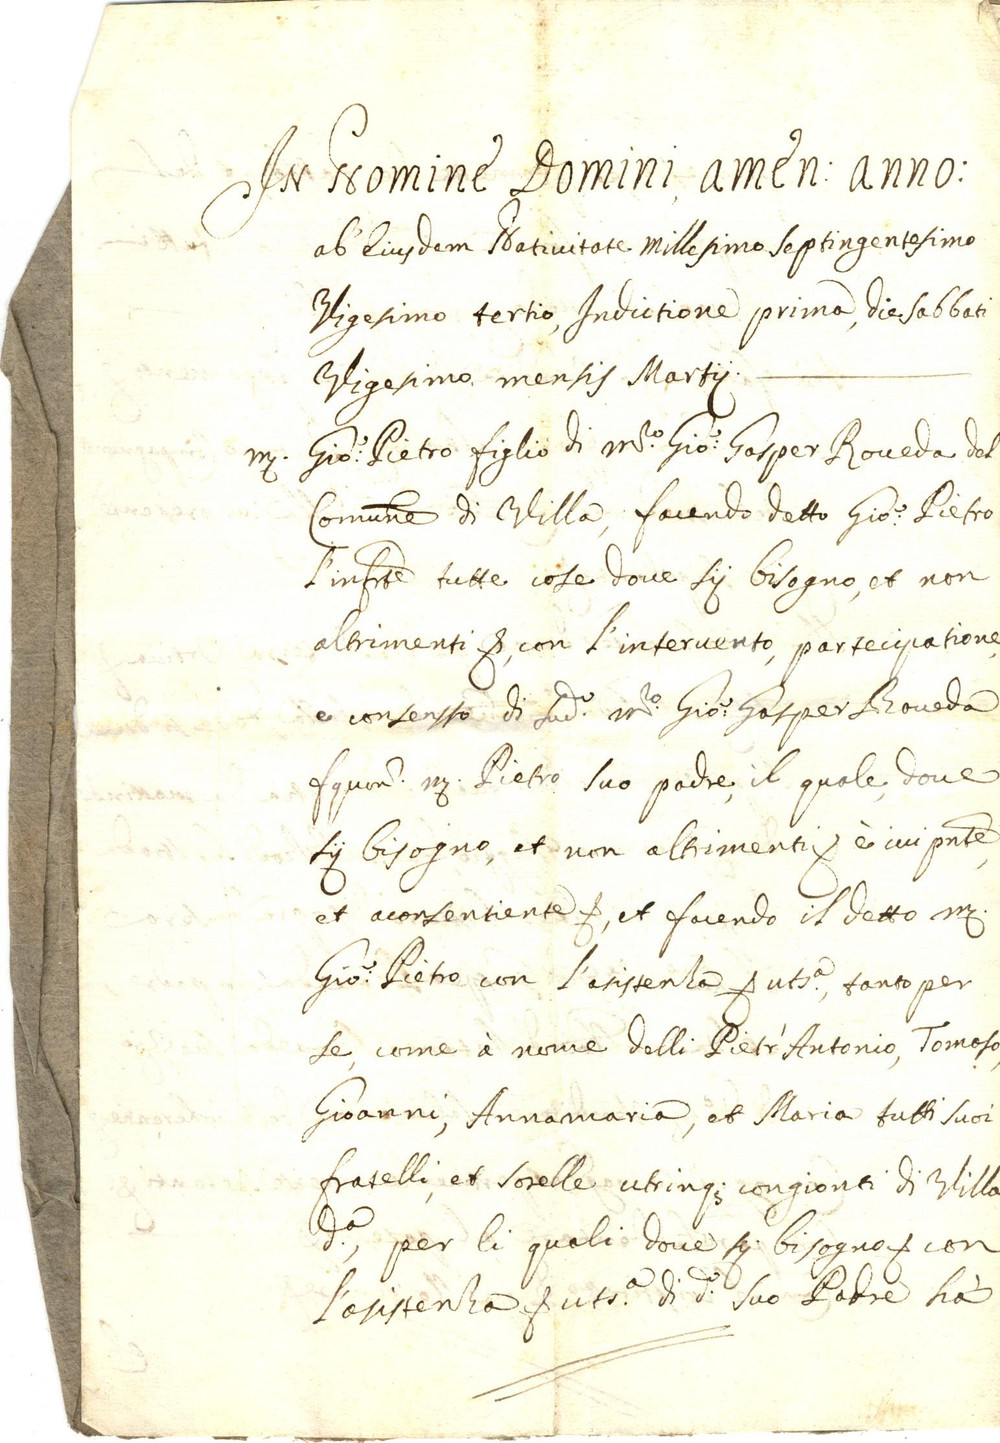 In Nomine Domini, amen: anno:
ab Eiusdem Natiuitate Millesimo Septingentesimo
Vigesimo tertio, Indictione prima, die Sabbati
Vigesimo mensis Martij.
m. Gio: Pietro figlio di mro. Gio: Gasper Roueda del
Comune di Villa, facendo detto Gio: Pietro
l'infrte tutte cose doue sij bisogno, et non
altrimenti, con l'interuento, partecipatione,
e consensso di sudo. mro. Gio: Gasper Roueda
fquon. m. Pietro suo padre, il quale, doue
sij bisogno, et non altrimenti è iui pnte,
et aconsentiente, et facendo il detto m.
Gio: Pietro con l'asistenza utsa., tanto per
se, come à nome delli Pietr'Antonio, Tomaso,
Gioanni, Annamaria, et Maria tutti suoi
fratelli, et sorelle utrinq; congionti di Villa
da., per li quali doue sij bisogno con
l'asistenza utsa. di do. suo Padre hà